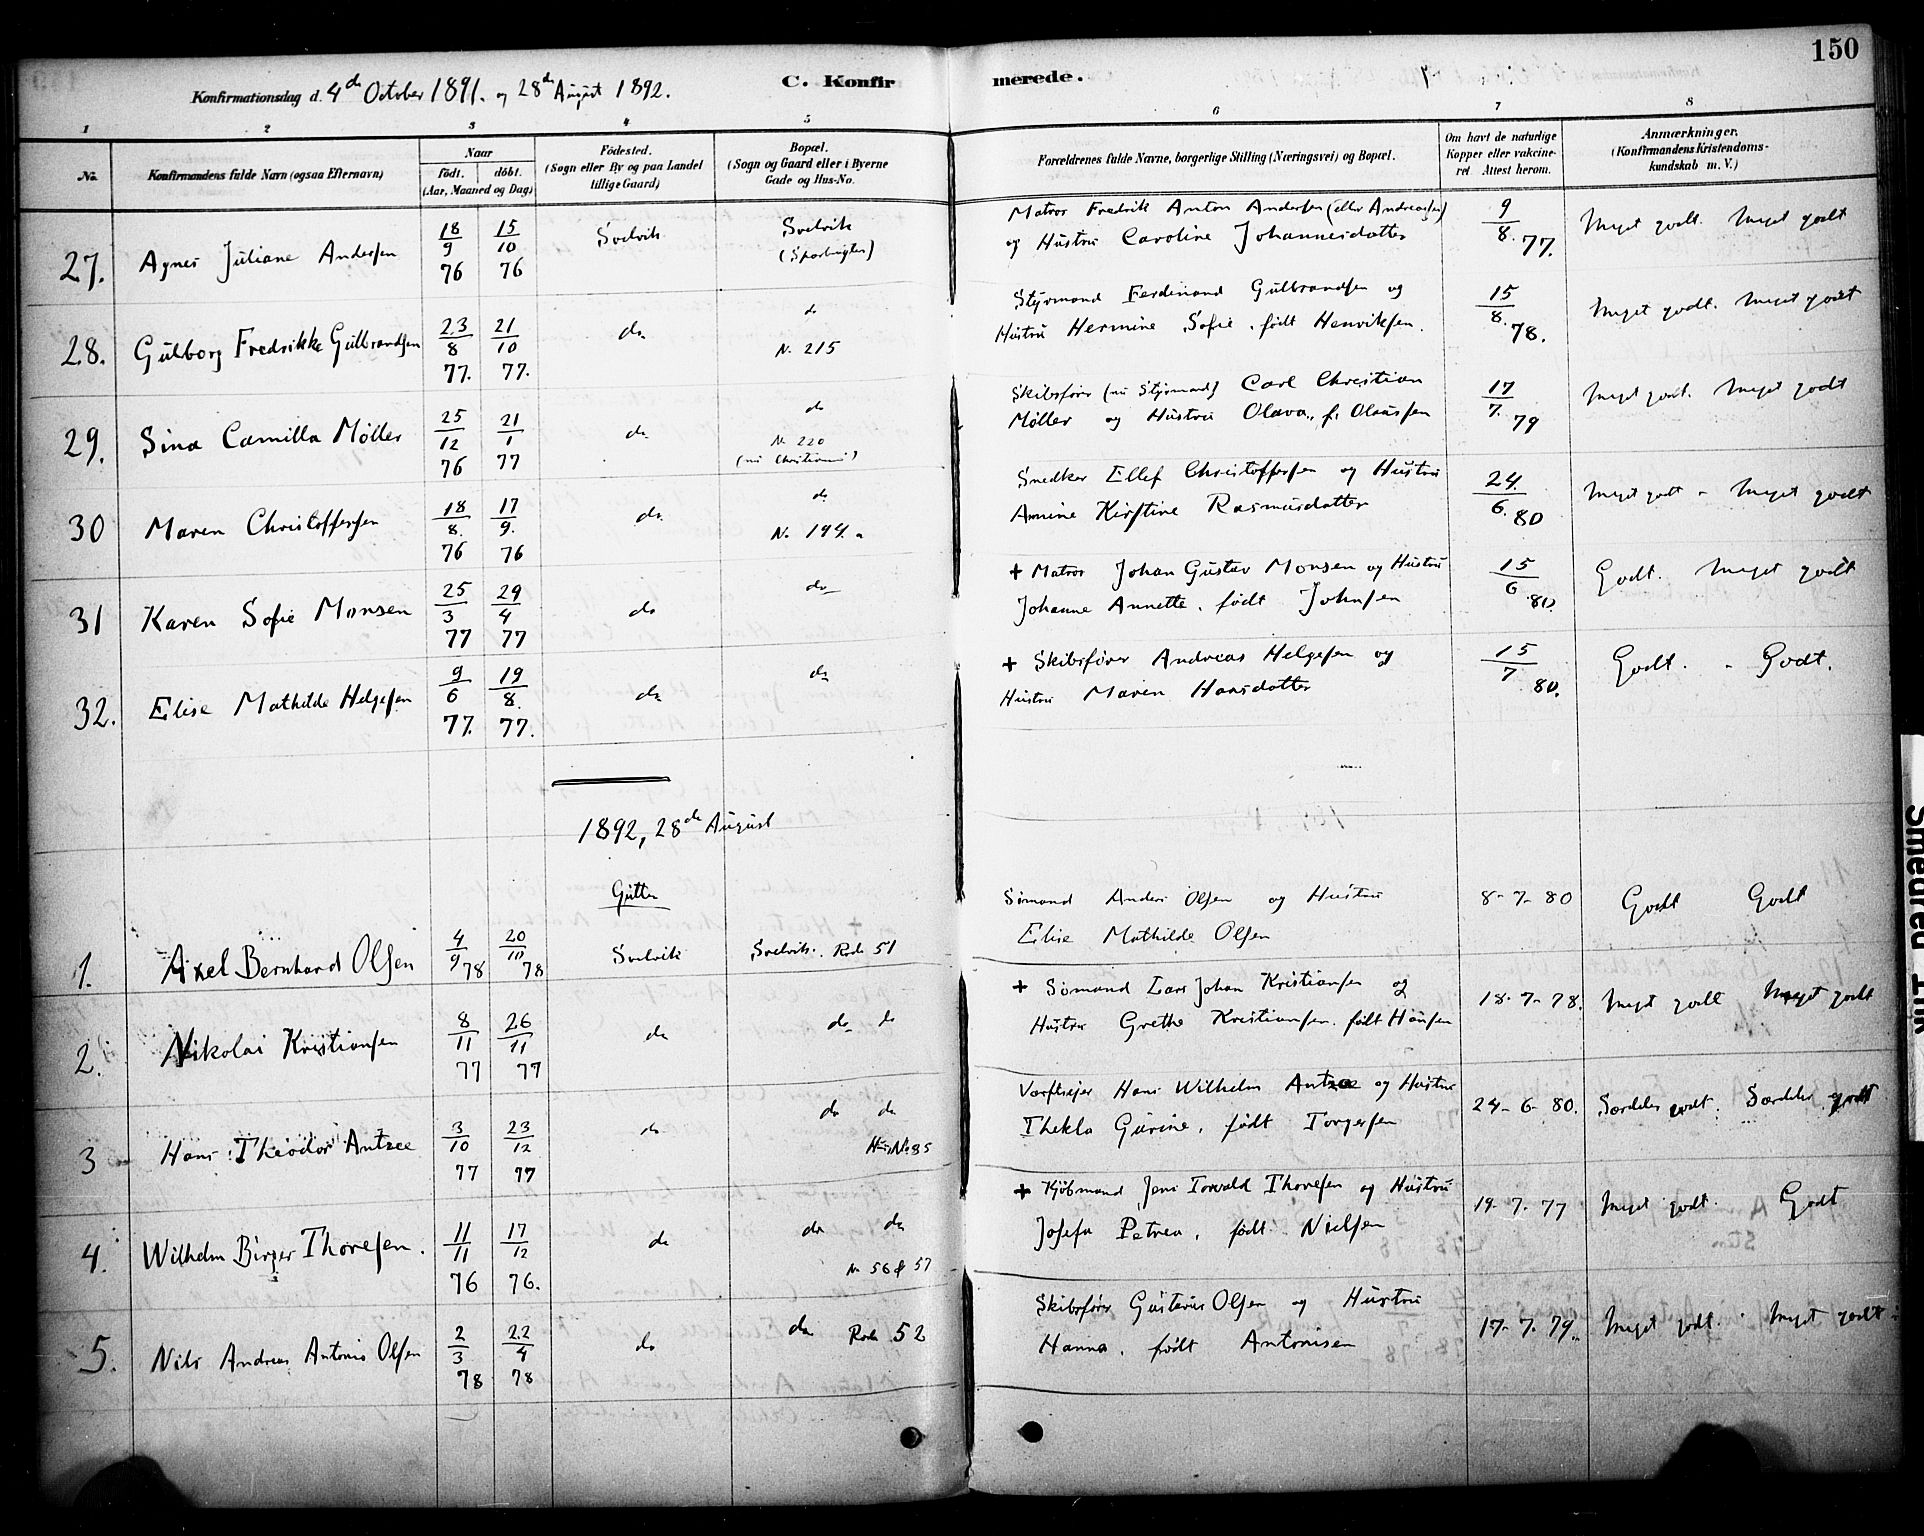 150
Konfirmationsdag d. 4de October 1891. og 28de August 1892.
C. Konfirmerede.
1 2 3 4 5 6 7 8
No.
Konfirmandens fulde Navn (ogsaa Efternavn)
Naar
födt. döbt.
(Aar, Maaned og Dag)
Födested.
(Sogn eller By og paa Landet
tillige Gaard)
Bopæl.
(Sogn og Gaard eller i Byerne
Gade og Hus-No.
Forældrenes fulde Navne, borgerlige Stilling (Næringsvei) og Bopæl.
Om havt de naturlige
Kopper eller vakcine-
ret Attest herom.
Anmærkninger.
(Konfirmandens Kristendoms-
kundskab m. V.)
27. Agnes Juliane Andersen 18/9 76 15/10 76 Svelvik Svelvik
Matros Fredrik Anton Andersen (eller Andreasen)
og Hustru Caroline Johannesdatter
9/8. 77. Meget godt. Meget godt
28. Gulborg Fredrikke Gulbrandsen 23/8 77. 21/10 77. do do
N. 215
Styrmand Ferdinand Gulbrandsen og
Hustru Hermine Sofie, født Henriksen.
15/8. 78. Meget godt. Meget godt
29. Sina Camilla Møller 25/12 76 21/1 77 do do
N. 220
(nu Christiania)
Skibsfører (nu Styrmand) Carl Christian
Møller og Hustru Olava, f. Olausen
17/7. 79 Meget godt. Meget godt
30 Maren Christoffersen 18/8. 76 17/9. 76 do do
N. 194. a
Snedker Ellef Christoffersen og Hustru
Annine Kirstine Rasmusdatter
24/6. 80 Meget godt - Meget godt
31 Karen Sofie Monsen 25/3 77 29/4 77 do do
+ Matros Johan Gustav Monsen og Hustru
Johanne Annette, født Johnsen
15/6 80 Godt. Meget godt
32. Elise Mathilde Helgesen 9/6 77. 19/8. 77. do do
+ Skibsfører Andreas Helgesen og
Hustru Maren Hansdatter
15/7 80. Godt. - Godt.
1892, 28de August
Gutter
1. Axel Bernhard Olsen 4/9 78 20/10 78 Svelvik Svelvik. Rode 51
Sømand Anders Olsen og Hustru
Elise Mathilde Olsen
8-7-80 Godt Godt
2. Nikolai Kristiansen 8/11 77 26/11 77 do do do
+ Sømand Lars Johan Kristiansen og
Hustru Grethe Kristiansen. født Hansen
18-7-78. Meget godt Meget godt
3 Hans Theodor Antzee 3/10 77 23/12 77 do do do
Hus No 85
Værftseier Hans Wilhelm Antzee og Hustru
Thekla Gurine, født Torgersen
24-6-80. Særdeles godt. Særdeles godt
4. Wilhelm Birger Thoresen. 11/11 76 17/12 76. do do do
N. 56 & 57
+ Kjøbmand Jens Torvald Thoresen og Hustru
Josefa Petrea, født Nielsen
19-7-77 Meget godt. Godt
5. Nils Andreas Antonius Olsen 2/3 78 22/4 78 do do Rode 52
Skibsfører Gustavus Olsen og Hustru
Hanna, født Antonisen
17-7.79. Meget godt. Meget godt